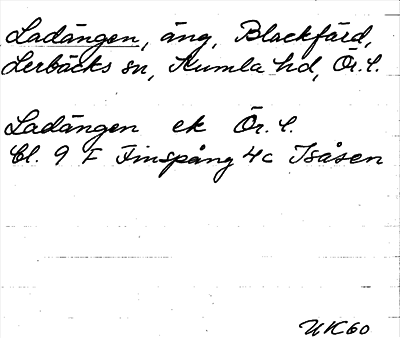 Ladängen, äng, Blackfärd,
Lerbäcks sn, Kumla hd, Ör. l.
Ladängen ek Ör. l.
bl. 9 F Finspång 4c Isåsen
UK60